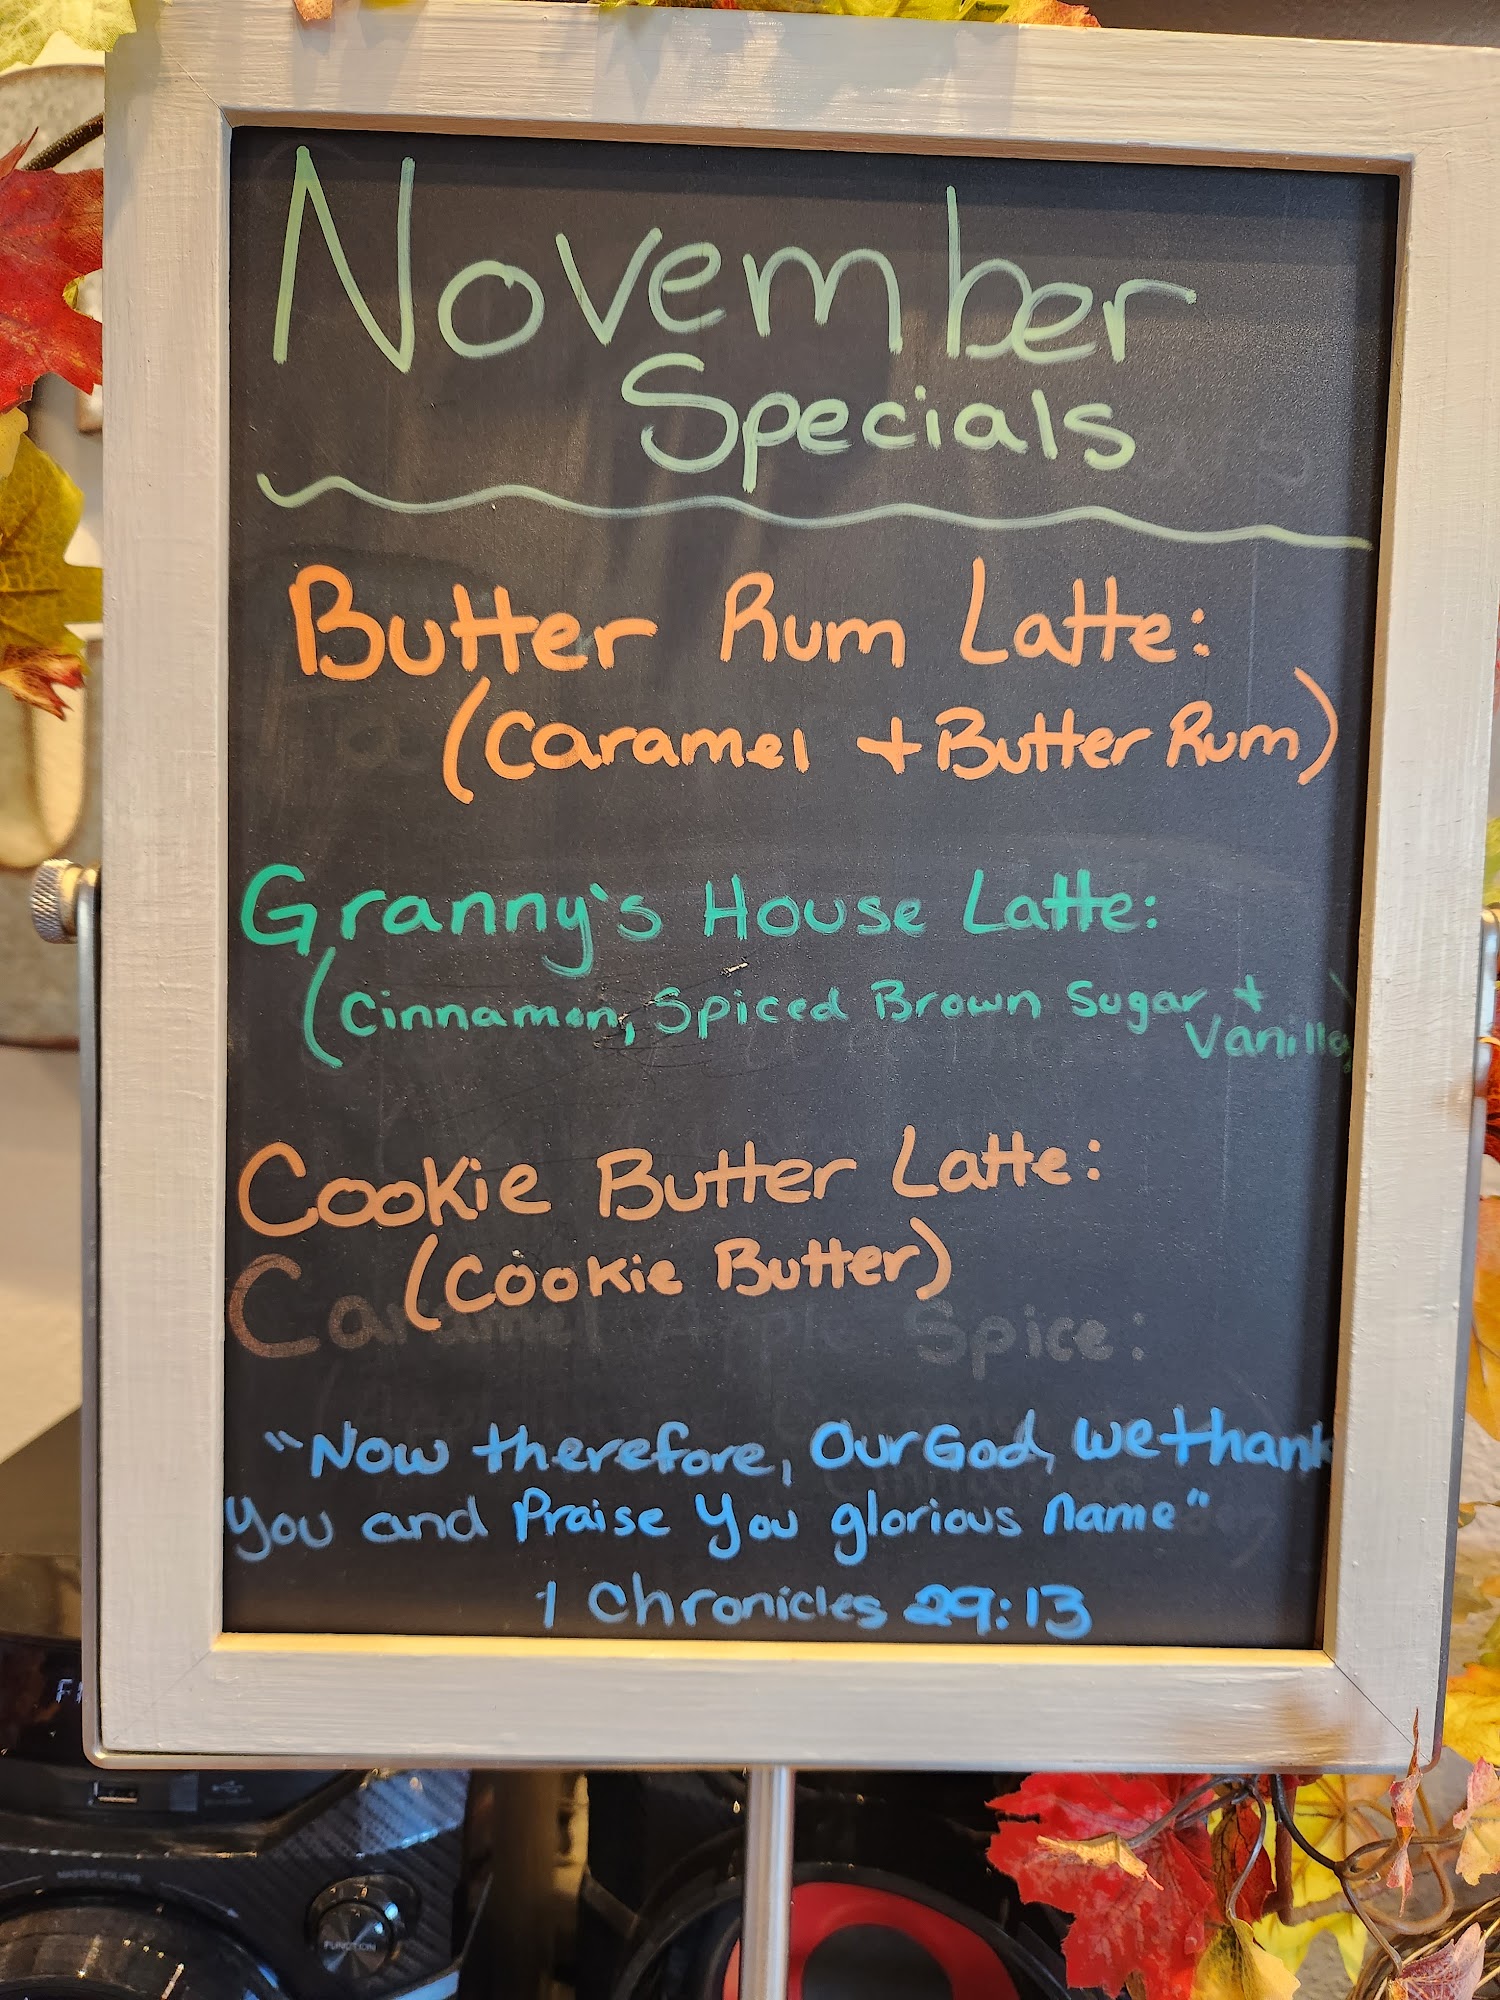 November
Specials
Butter Rum Latte:
(Caramel + Butter Rum)
Granny's House Latte:
(Cinnamon, Spiced Brown Sugar +
Vanilla)
Cookie Butter Latte:
(Cookie Butter)
Caramel Apple Spice:
"Now therefore, Our God, we thank
You and Praise You glorious name"
1 Chronicles 29:13
MASTER VOLUME
FUNCTION